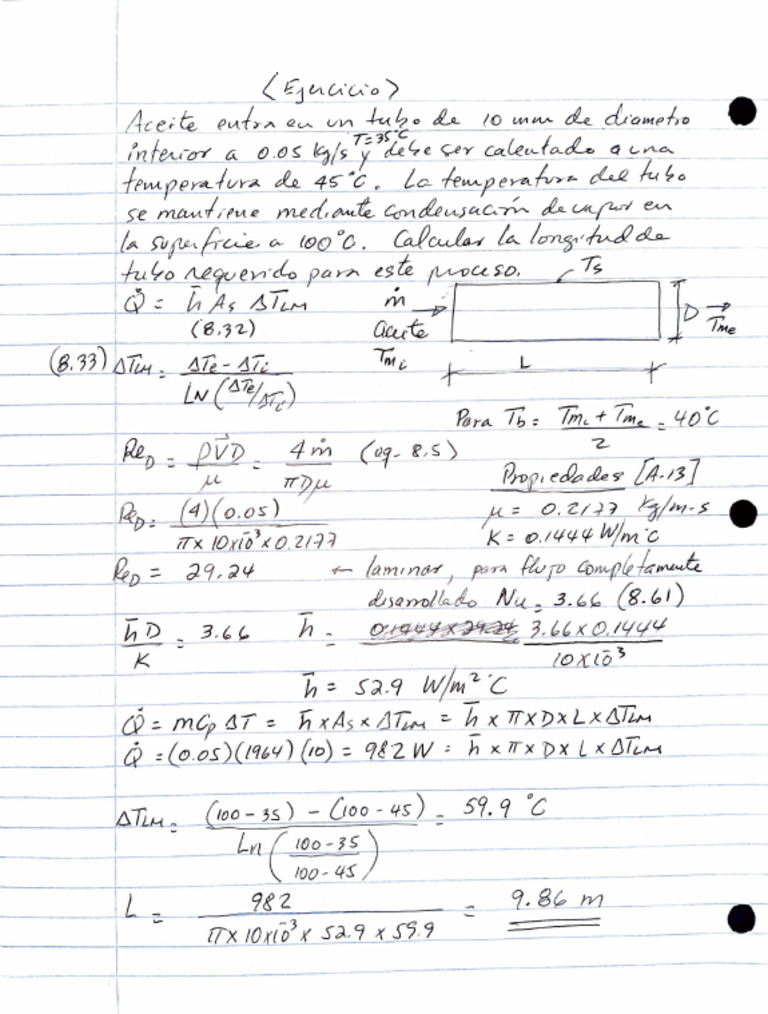 <Ejercicio>
Aceite entra en un tubo de 10 mm de diametro
interior a 0.05 Kg/s T=35°C y debe ser calentado a una
temperatura de 45°C. La temperatura del tubo
se mantiene mediante condensación de vapor en
la superficie a 100°C. Calcular la longitud de
tubo requerido para este proceso.
Ts
Q̇ = h̄ As ΔTLM
(8.32)
ṁ
aceite
Tmi
L
D
Tme
(8.33) ΔTLM = (ΔTe - ΔTi) / LN (ΔTe/ΔTi)
Para Tb = (Tmi + Tme) / 2 = 40°C
ReD = ρV̄D / μ = 4ṁ / πDμ (eq. 8.5)
Propiedades [A-13]
μ = 0.2177 Kg/m-s
K = 0.1444 W/m°C
ReD = (4)(0.05) / π x 10x10⁻³ x 0.2177
ReD = 29.24 ← laminar, para flujo completamente
desarrollado Nu = 3.66 (8.61)
h̄D / K = 3.66 h̄ = 3.66 x 0.1444 / 10x10⁻³
h̄ = 52.9 W/m²°C
Q̇ = mCp ΔT = h̄ x As x ΔTLM = h̄ x π x D x L x ΔTLM
Q̇ = (0.05)(1964)(10) = 982 W = h̄ x π x D x L x ΔTLM
ΔTLM = (100-35) - (100-45) / Ln (100-35 / 100-45) = 59.9 °C
L = 982 / π x 10x10⁻³ x 52.9 x 59.9 = 9.86 m